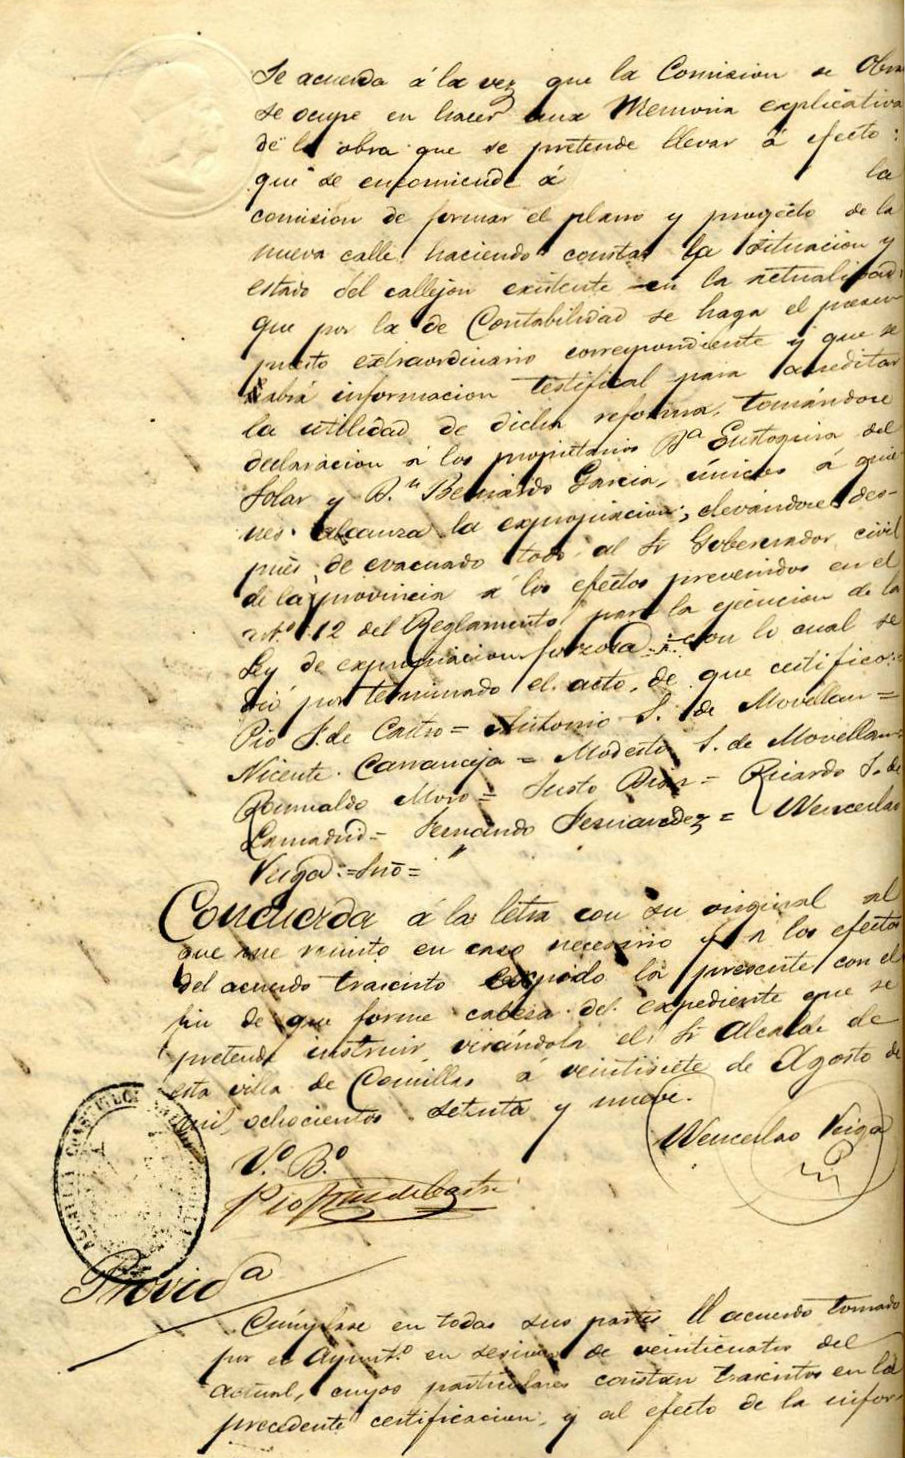 Se acuerda á la vez que la Comision de Obras
se ocupe en hacer una Memoria explicativa
de la obra que se pretende llevar á efecto:
que se encomiende á la
comision de formar el plano y proyecto de la
nueva calle, haciendo constar la situacion y
estado del callejon existente en la actualidad:
que por la de Contabilidad se haga el presu-
puesto extraordinario correspondiente y que se
abra informacion testifical para acreditar
la utilidad de dicha reforma, tomándose
declaracion á los propietarios Dª Eustoquia del
Solar y D.n Bernardo Garcia, únicos á quie-
nes alcanza la expropiacion; elevándose des-
pues de evacuado todo al Sr Gobernador civil
de la provincia á los efectos prevenidos en el
art.º 12 del Reglamento para la ejecucion de la
Ley de expropiacion forzosa.=Con lo cual se
dió por terminado el acto, de que certifico.=
Pio S. de Castro= Antonio S. de Movellan=
Vicente Carranceja = Modesto S. de Movellan=
Romualdo Moro= Justo Diaz= Ricardo S. de
Lamadrid= Fernando Fernandez= Wenceslao
Veiga=Srio=
Concuerda á la letra con su original al
que me remito en caso necesario y á los efectos
del acuerdo trascrito expido la presente con el
fin de que forme cabeza del expediente que se
pretende instruir, visándola el Sr Alcalde de
esta villa de Comillas á veintisiete de Agosto de
mil ochocientos setenta y nueve.
Wenceslao Veiga
V.º B.º
Pio de Castro
Provid.a
Cúmplase en todas sus partes el acuerdo tomado
por el Ayunt.º en sesion de veinticuatro del
actual, cuyos particulares constan trascritos en la
precedente certificacion, y al efecto de la infor-